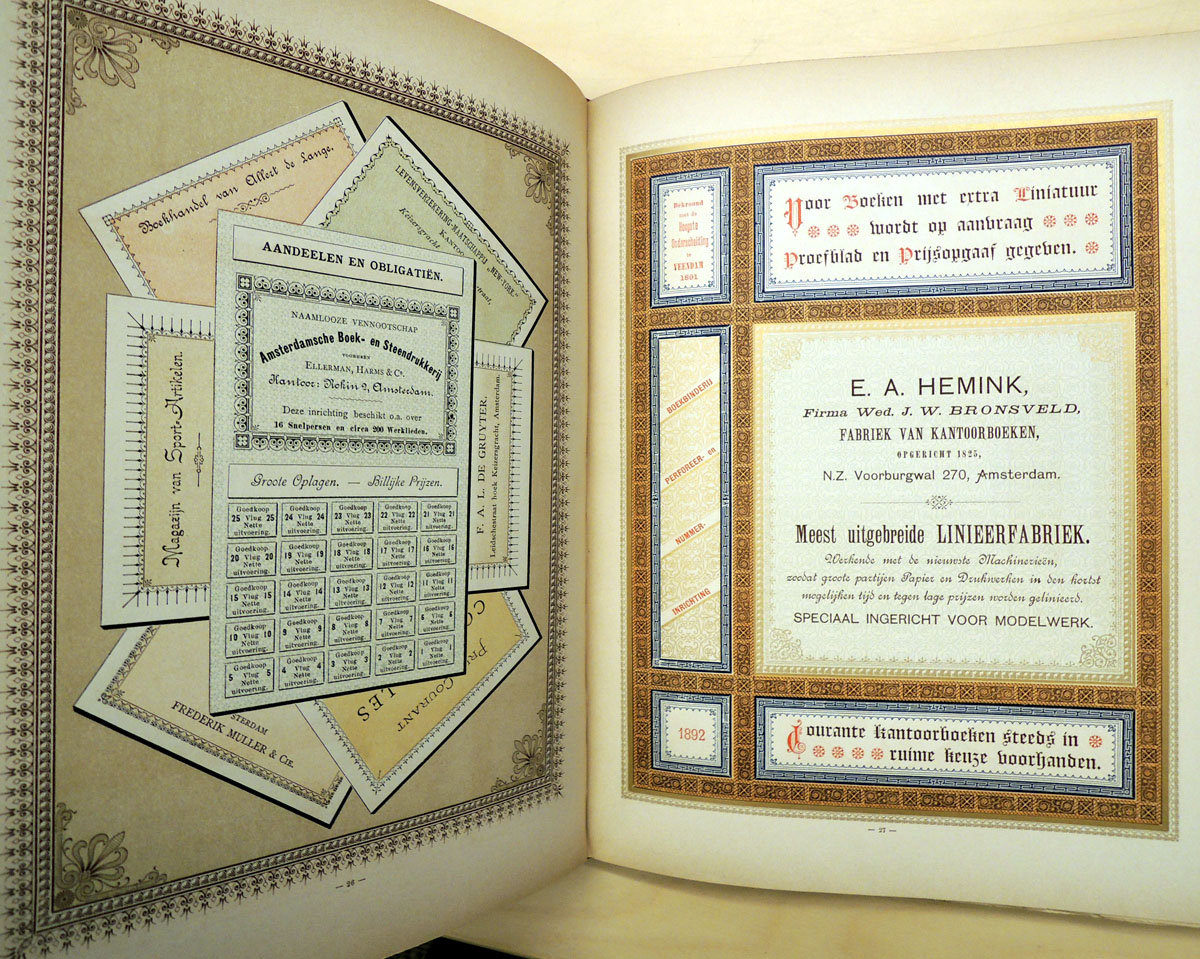 Boekhandel van Allert de Lange.
LEVENSVERZEKERING-MAATSCHAPPIJ „NEW-YORK“
Keizersgracht
AANDEELEN EN OBLIGATIËN.
NAAMLOOZE VENNOOTSCHAP
Amsterdamsche Boek- en Steendrukkerij
VOORHEEN
ELLERMAN, HARMS & Co.
Kantoor: Rokin 2, Amsterdam.
Deze inrichting beschikt o.a. over
16 Snelpersen en circa 200 Werklieden.
Groote Oplagen. — Billijke Prijzen.
Goedkoop Goedkoop Goedkoop Goedkoop Goedkoop
25 Vlug 25 24 Vlug 24 23 Vlug 23 22 Vlug 22 21 Vlug 21
Nette Nette Nette Nette Nette
uitvoering. uitvoering. uitvoering. uitvoering. uitvoering.
Goedkoop Goedkoop Goedkoop Goedkoop Goedkoop
20 Vlug 20 19 Vlug 19 18 Vlug 18 17 Vlug 17 16 Vlug 16
Nette Nette Nette Nette Nette
uitvoering. uitvoering. uitvoering. uitvoering. uitvoering.
Goedkoop Goedkoop Goedkoop Goedkoop Goedkoop
15 Vlug 15 14 Vlug 14 13 Vlug 13 12 Vlug 12 11 Vlug 11
Nette Nette Nette Nette Nette
uitvoering. uitvoering. uitvoering. uitvoering. uitvoering.
Goedkoop Goedkoop Goedkoop Goedkoop Goedkoop
10 Vlug 10 9 Vlug 9 8 Vlug 8 7 Vlug 7 6 Vlug 6
Nette Nette Nette Nette Nette
uitvoering. uitvoering. uitvoering. uitvoering. uitvoering.
Goedkoop Goedkoop Goedkoop Goedkoop Goedkoop
5 Vlug 5 4 Vlug 4 3 Vlug 3 2 Vlug 2 1 Vlug 1
Nette Nette Nette Nette Nette
uitvoering. uitvoering. uitvoering. uitvoering. uitvoering.
Magazijn van Sport-Artikelen.
F. A. L. DE GRUYTER.
Leidschestraat hoek Keizersgracht, Amsterdam.
STERDAM
FREDERIK MULLER & Cie.
COURANT
— 26 —
Bekroond
met de
Hoogste
Onderscheiding
te
VEENDAM
1891
Voor Boeken met extra Liniatuur
wordt op aanvraag
Proefblad en Prijsopgaaf gegeven.
BOEKBINDERIJ
PERFOREER- en
NUMMER-
INRICHTING
E. A. HEMINK,
Firma Wed. J. W. BRONSVELD,
FABRIEK VAN KANTOORBOEKEN,
OPGERICHT 1825,
N.Z. Voorburgwal 270, Amsterdam.
Meest uitgebreide LINIEERFABRIEK.
Werkende met de nieuwste Machinerieën,
zoodat groote partijen Papier en Drukwerken in den kortst
mogelijken tijd en tegen lage prijzen worden gelinieerd.
SPECIAAL INGERICHT VOOR MODELWERK.
1892
Courante kantoorboeken steeds in
ruime keuze voorhanden.
— 27 —